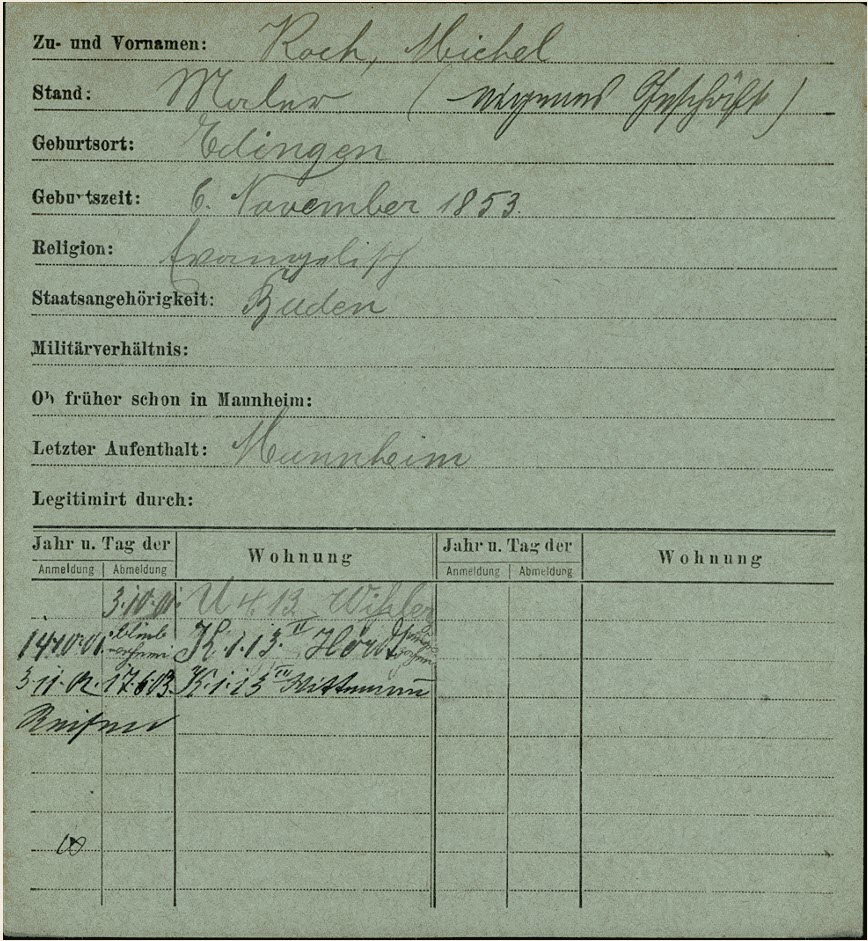 Zu- und Vornamen: Koch, Michel
Stand: Maler (eigenes Geschäft)
Geburtsort: Edingen
Geburtszeit: 6. November 1853.
Religion: Evangelisch
Staatsangehörigkeit: Baden
Militärverhältnis:
Ob früher schon in Mannheim:
Letzter Aufenthalt: Mannheim
Legitimirt durch:
Jahr u. Tag der Wohnung Jahr u. Tag der Wohnung
Anmeldung Abmeldung Anmeldung Abmeldung
3.10.01. U 4. 13
14.10.01. K. 1. 13. II
3.11.02. 17.6.03. K. 1. 13 III Wittmann